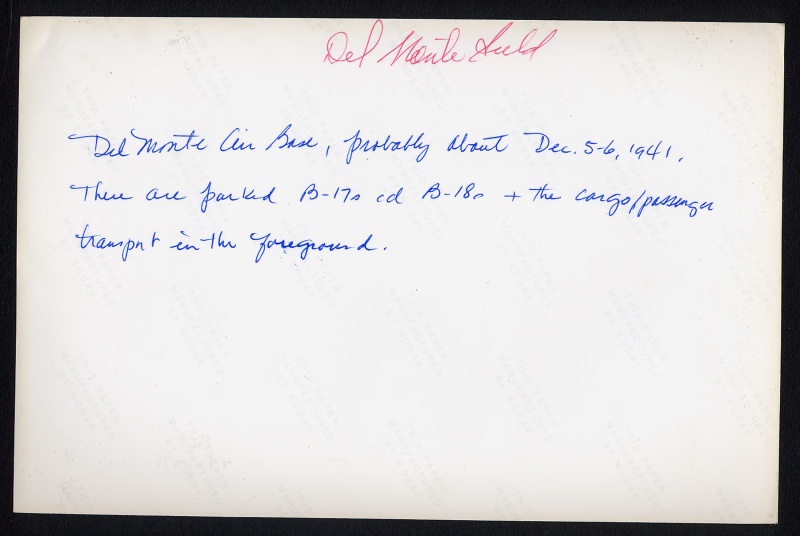 Del Monte Field
Del Monte Air Base, probably about Dec. 5-6, 1941.
There are parked B-17s B-18s + the cargo/passenger
transport in the foreground.
THIS PAPER
MANUFACTURED
BY KODAK